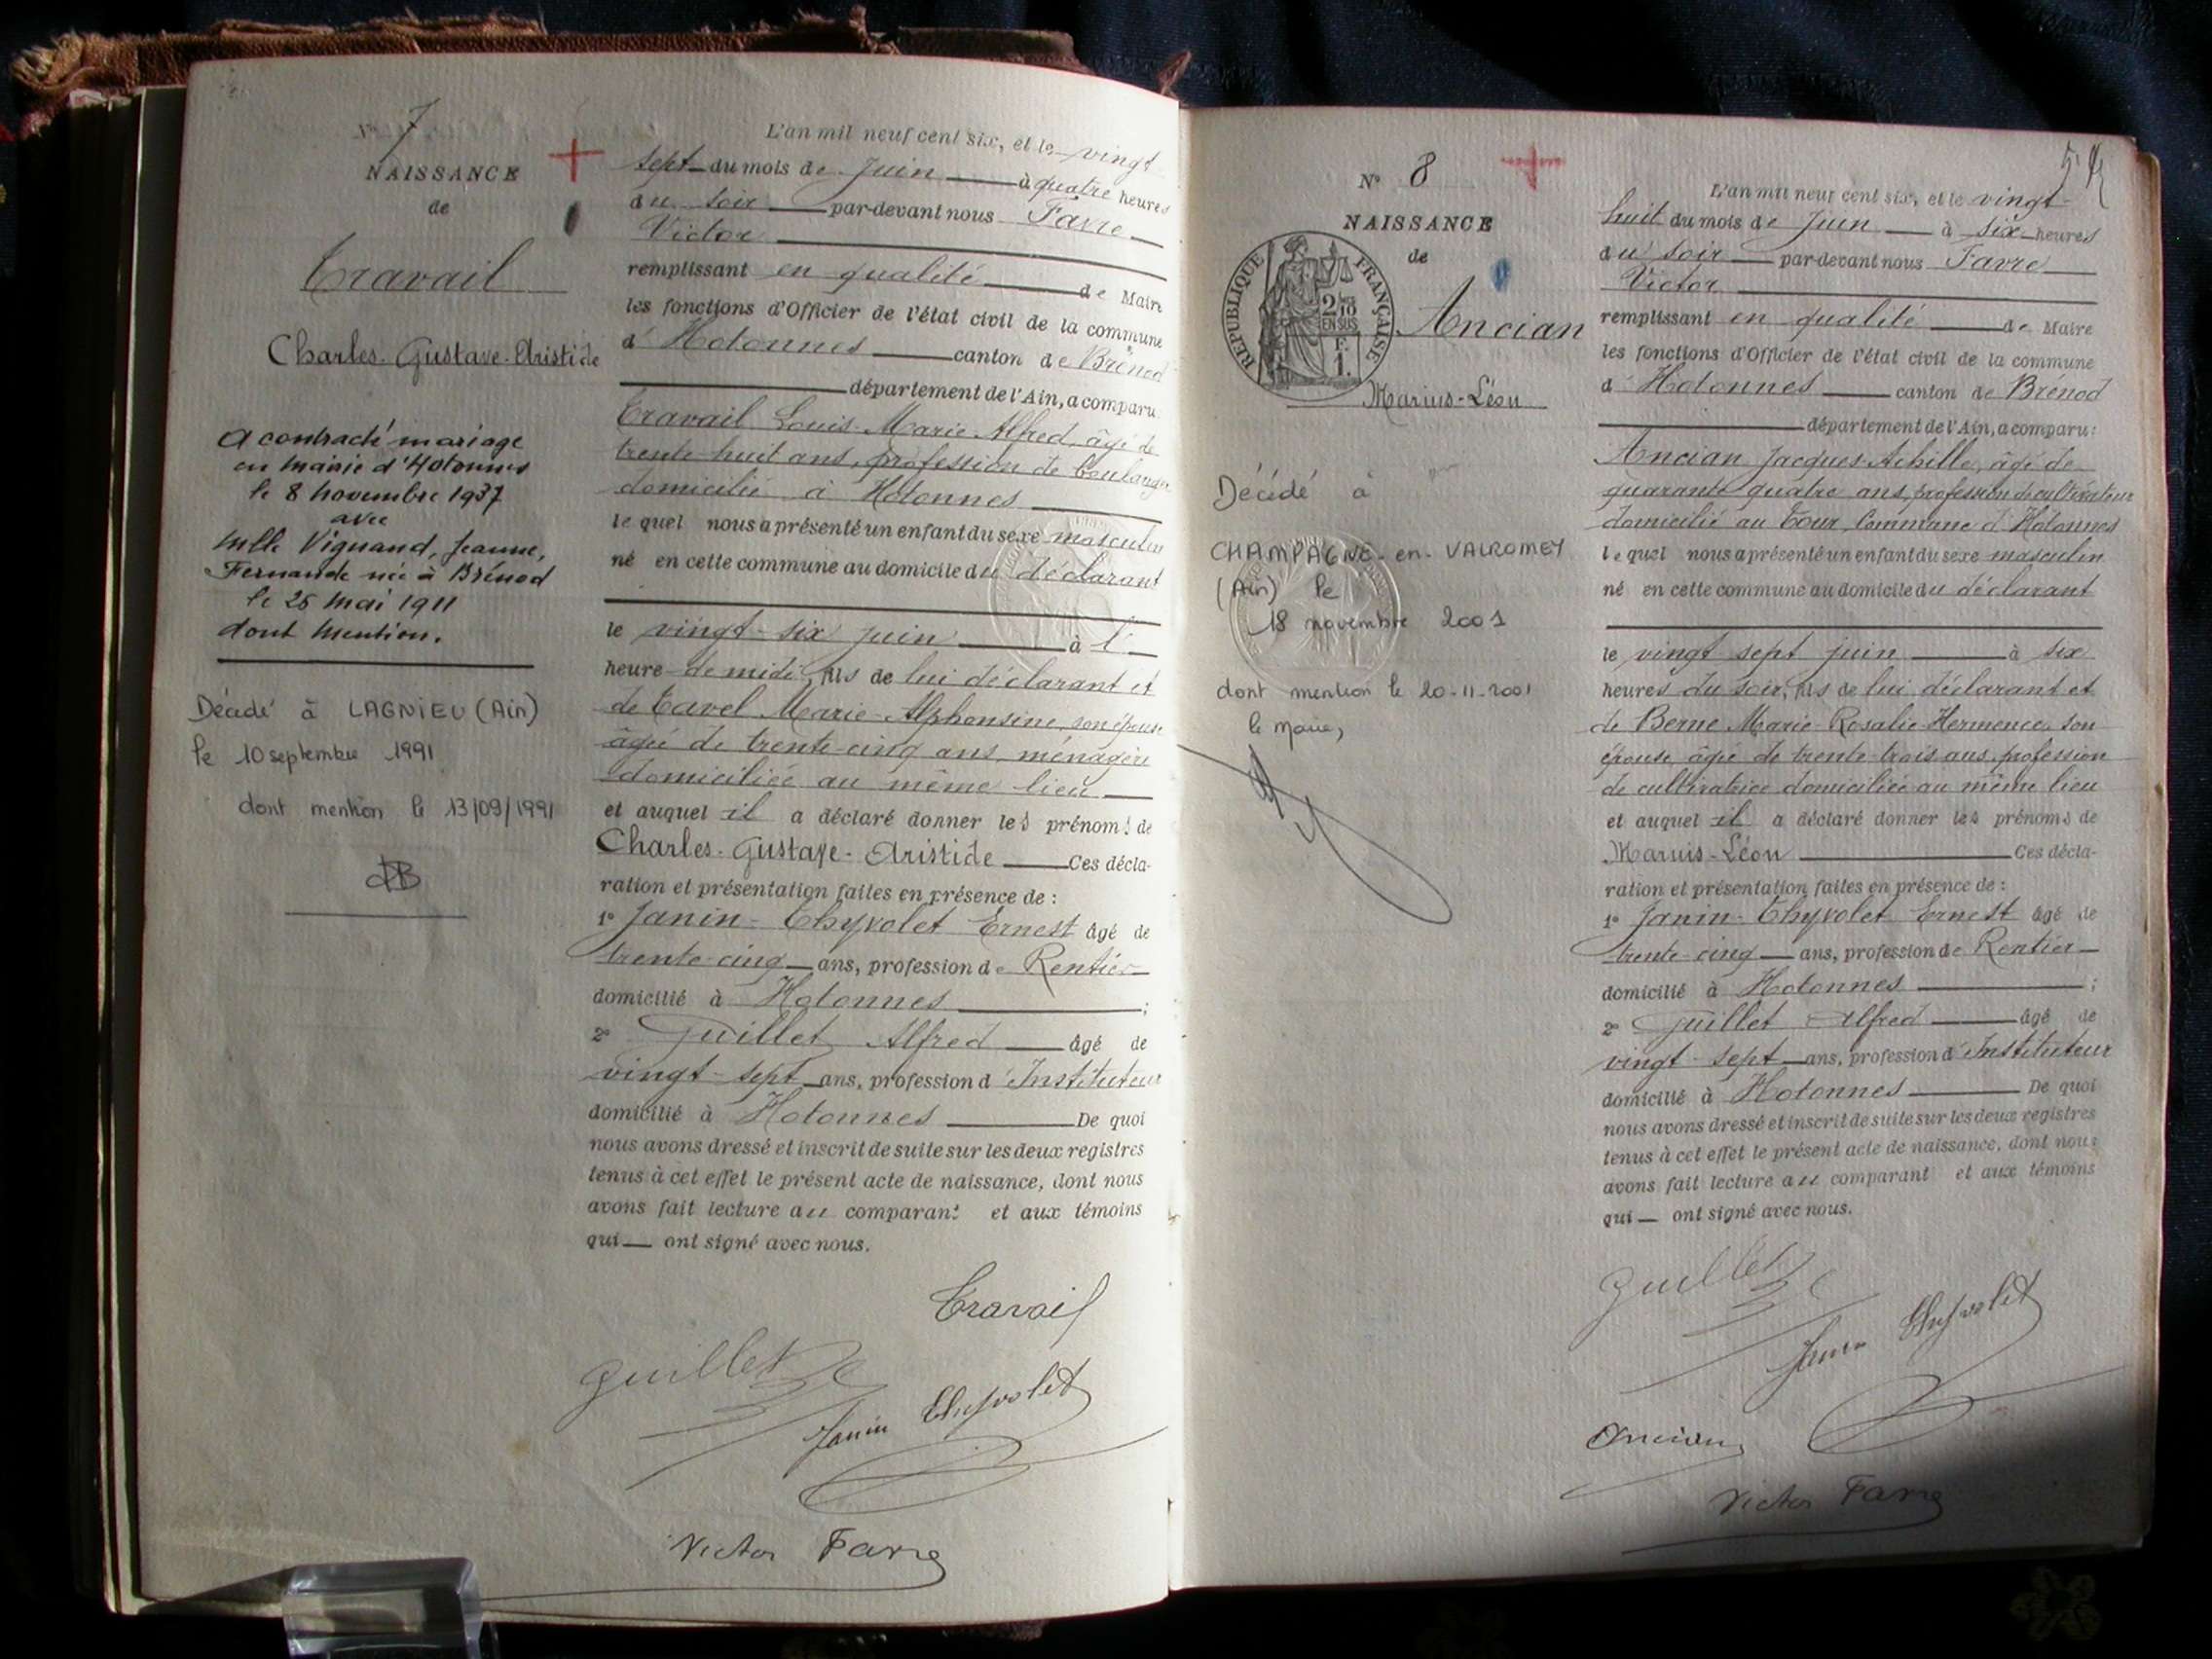 N° 7
NAISSANCE
de
Travail
Charles-Gustave-Aristide
A contracté mariage
en mairie d'Hotonnes
le 8 novembre 1937
avec
Mlle Vignand, Jeanne,
Fernande née à Brénod
le 25 mai 1911
dont mention.
Décédé à LAGNIEU (Ain)
le 10 septembre 1991
dont mention le 13/09/1991
L'an mil neuf cent six, et le vingt-
sept du mois de Juin à quatre heures
du soir par-devant nous Favre
Victor
remplissant en qualité de Maire
les fonctions d'Officier de l'état civil de la commune
d'Hotonnes canton de Brénod
département de l'Ain, a comparu:
Travail Louis-Marie-Alfred, âgé de
trente-huit ans, profession de boulanger
domicilié à Hotonnes
lequel nous a présenté un enfant du sexe masculin
né en cette commune au domicile du déclarant
le vingt-six juin à l'
heure de midi, fils de lui déclarant et
de Tavel Marie-Alphonsine, son épouse
âgée de trente-cinq ans, ménagère
domiciliée au même lieu
et auquel il a déclaré donner les prénoms de
Charles-Gustave-Aristide Ces décla-
ration et présentation faites en présence de :
1° Janin-Thyvolet Ernest âgé de
trente-cinq ans, profession de Rentier
domicilié à Hotonnes ;
2° Guillet Alfred âgé de
vingt-sept ans, profession d'Instituteur
domicilié à Hotonnes De quoi
nous avons dressé et inscrit de suite sur les deux registres
tenus à cet effet le présent acte de naissance, dont nous
avons fait lecture au comparant et aux témoins
qui ont signé avec nous.
Travail
Guillet
Janin Thyvolet
Victor Favre
N° 8
NAISSANCE
de
REPUBLIQUE FRANÇAISE
2/10
EN SUS
F.
1.
Ancian
Marius-Léon
Décédé à
CHAMPAGNE-en-VALROMEY
(Ain) le
18 novembre 2001
dont mention le 20-11-2001
le Maire,
L'an mil neuf cent six, et le vingt-
huit du mois de Juin à six heures
du soir par-devant nous Favre
Victor
remplissant en qualité de Maire
les fonctions d'Officier de l'état civil de la commune
d'Hotonnes canton de Brénod
département de l'Ain, a comparu:
Ancian Jacques-Achille, âgé de
quarante quatre ans, profession de cultivateur
domicilié au Tour, Commune d'Hotonnes
lequel nous a présenté un enfant du sexe masculin
né en cette commune au domicile du déclarant
le vingt sept juin à six
heures du soir, fils de lui déclarant et
de Berne Marie-Rosalie-Hermence, son
épouse, âgée de trente-trois ans, profession
de cultivatrice domiciliée au même lieu
et auquel il a déclaré donner les prénoms de
Maruis-Léon Ces décla-
ration et présentation faites en présence de :
1° Janin-Thyvolet Ernest âgé de
trente-cinq ans, profession de Rentier
domicilié à Hotonnes ;
2° Guillet Alfred âgé de
vingt-sept ans, profession d'Instituteur
domicilié à Hotonnes De quoi
nous avons dressé et inscrit de suite sur les deux registres
tenus à cet effet le présent acte de naissance, dont nous
avons fait lecture au comparant et aux témoins
qui ont signé avec nous.
Guillet
Janin Thyvolet
Ancian
Victor Favre